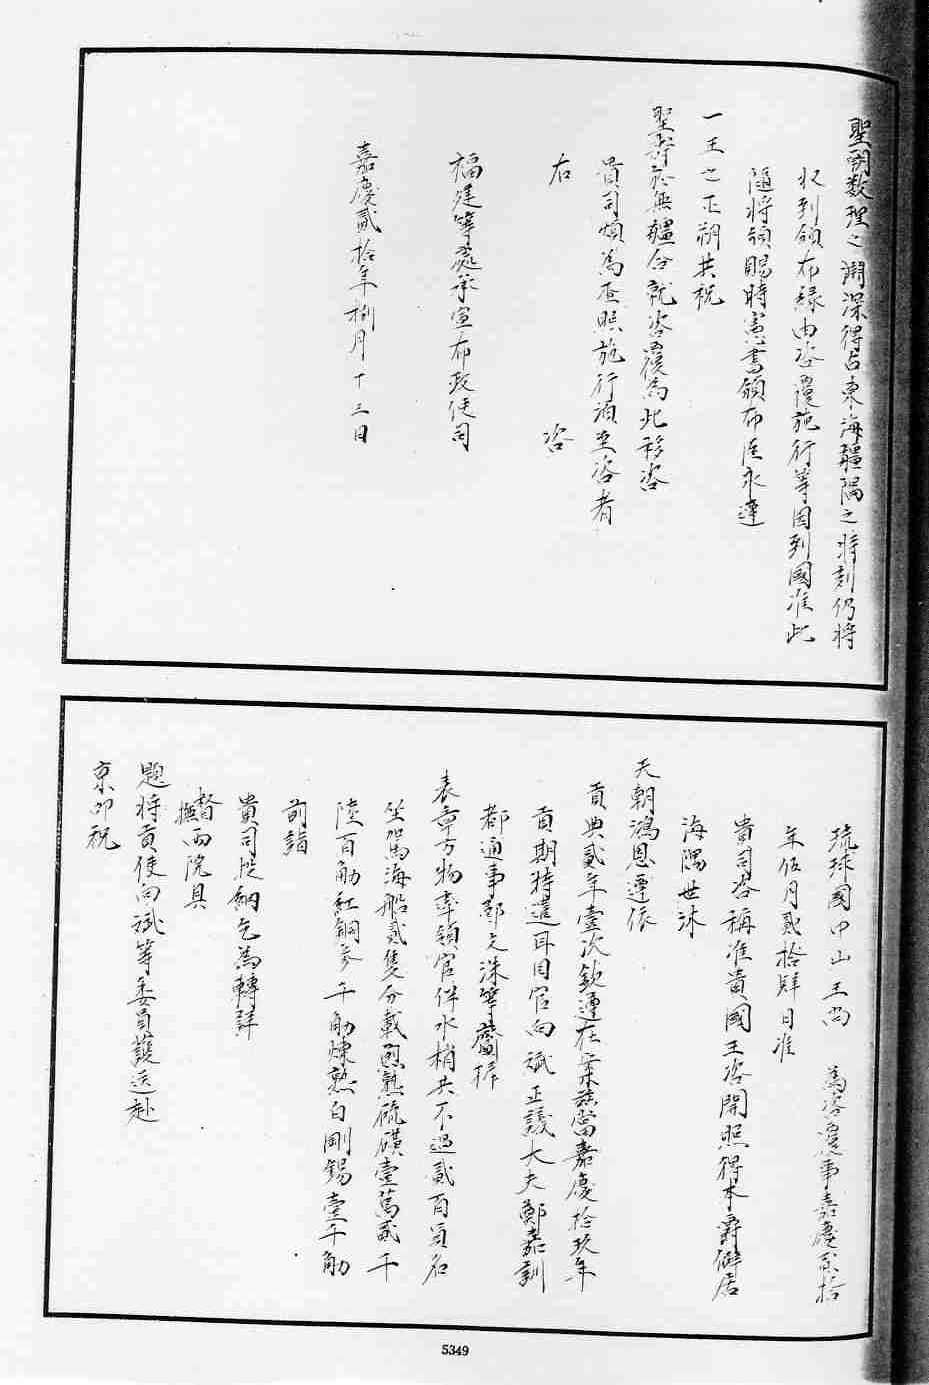 聖朝数理之淵深得占東海疆隅之時刻仍將
収到頒布緣由咨覆施行等因到國准此
隨將頒賜時憲書頒布臣永遵
一王之正朔共祝
聖壽於無疆合就咨覆為此移咨
貴司煩為查照施行須至咨者
右　咨
福建等處承宣布政使司
嘉慶貳拾年捌月十三日
琉球國中山王尚　為咨覆事嘉慶貳拾
年伍月貳拾肆日准
貴司咨稱准貴國王咨開照得本爵僻居
海隅世沐
天朝鴻恩遵依
貢典貳年壹次欽遵在案茲當嘉慶拾玖年
貢期特遣耳目官向斌正議大夫鄭嘉訓
都通事鄭文洙等齎捧
表章方物率領官伴水梢共不過貳百員名
坐駕海船貳隻分載煎熟硫磺壹萬貳千
陸百觔紅銅參千觔煉熟白剛錫壹千觔
前詣
貴司投納乞為轉詳
督
撫兩院具
題將貢使向斌等委員護送赴
京叩祝
5349